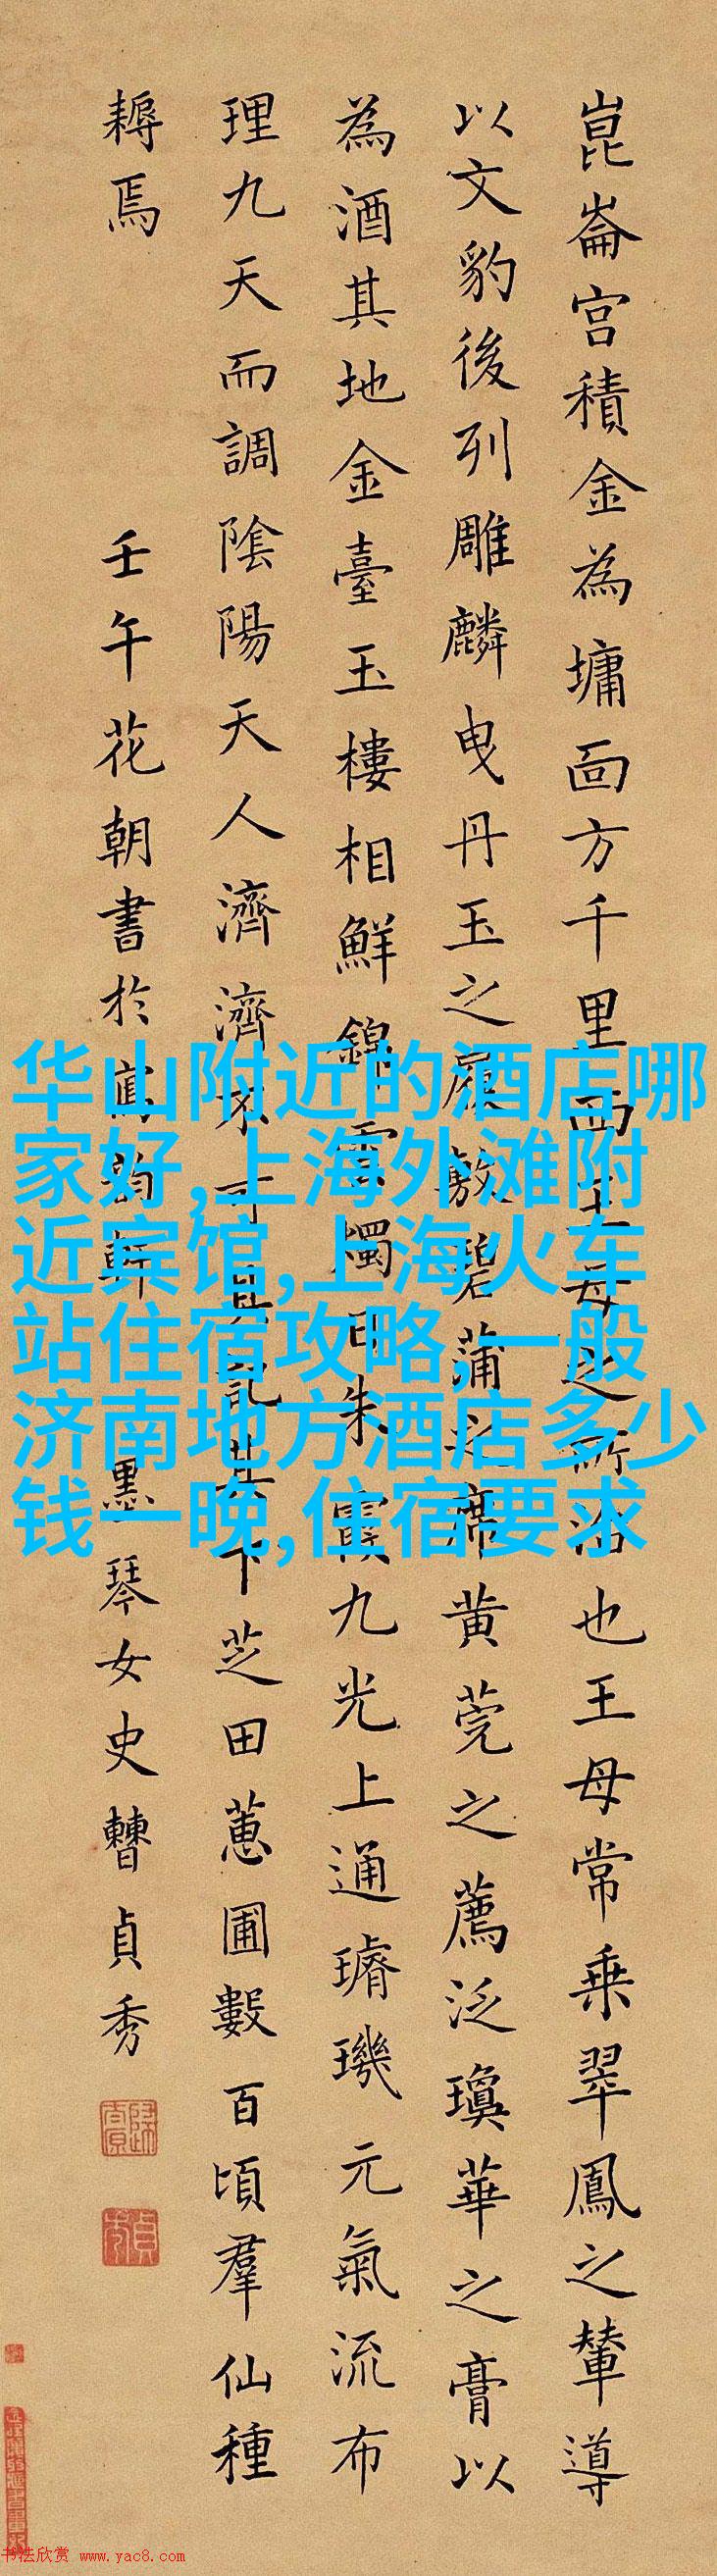 崑崙宮積金為墉靣方千里西王母之所治也王母常乗翠鳳之輦導
以文豹後列雕麟曳丹玉之履敷碧蒲之席黄莞之薦泛瓊華之膏以
為酒其地金臺玉樓相鮮錦雲燭日朱霞九光上通璿璣元氣流布
理九天而調陰陽天人濟濟不可具記其下芝田蕙圃數百頃羣仙種
耨焉
壬午花朝書於寫韵軒 墨琴女史曹貞秀
华山附近的酒店哪
家好,上海外滩附
近宾馆,上海火车
站住宿攻略,一般
济南地方酒店多少
钱一晚,住宿要求
书法欣赏 www.yac8.com